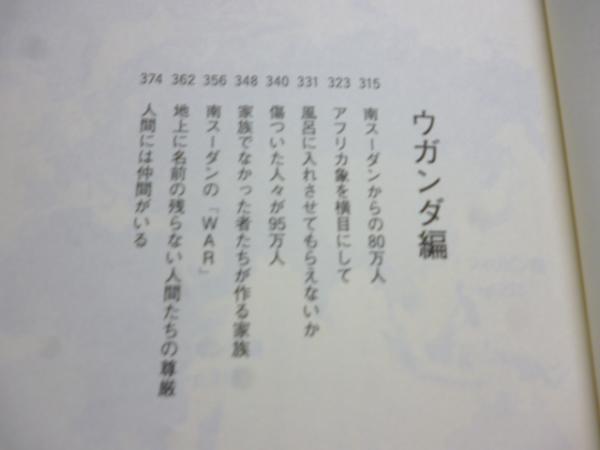 ウガンダ編
315 南スーダンからの80万人
323 アフリカ象を横目にして
331 風呂に入れさせてもらえないか
340 傷ついた人々が95万人
348 家族でなかった者たちが作る家族
356 南スーダンの「WAR」
362 地上に名前の残らない人間たちの尊厳
374 人間には仲間がいる